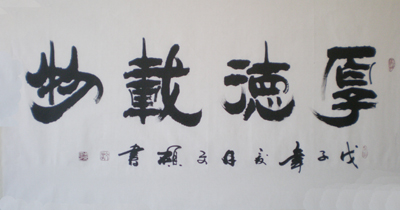 厚德載物
戊子年夏月文書